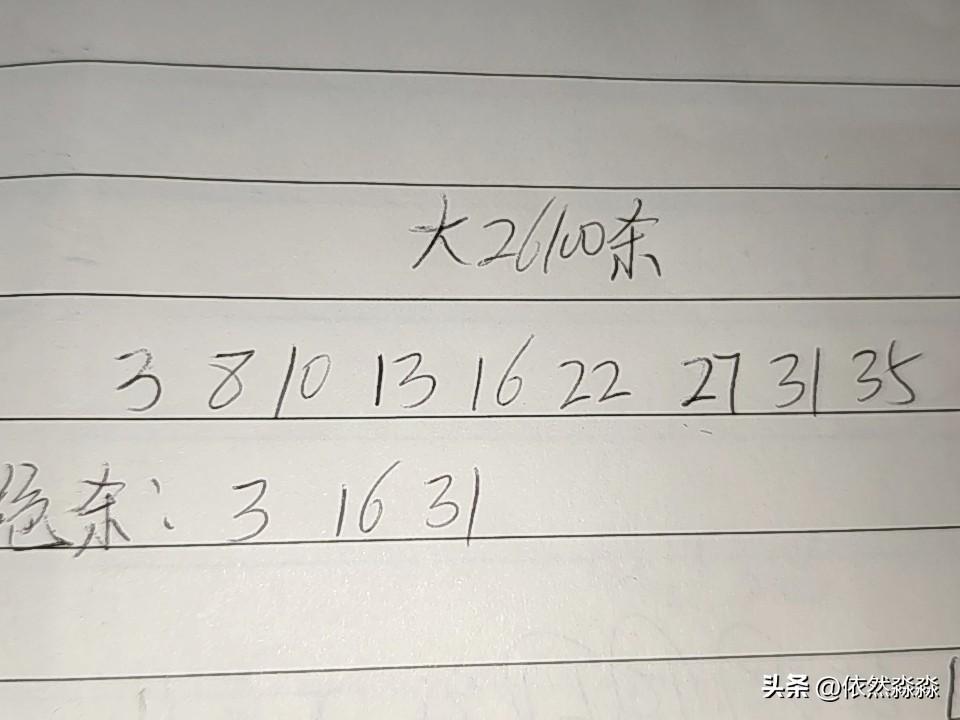 大26100杀
3 8 10 13 16 22 27 31 35
绝杀: 3 16 31
头条 @依然淼淼